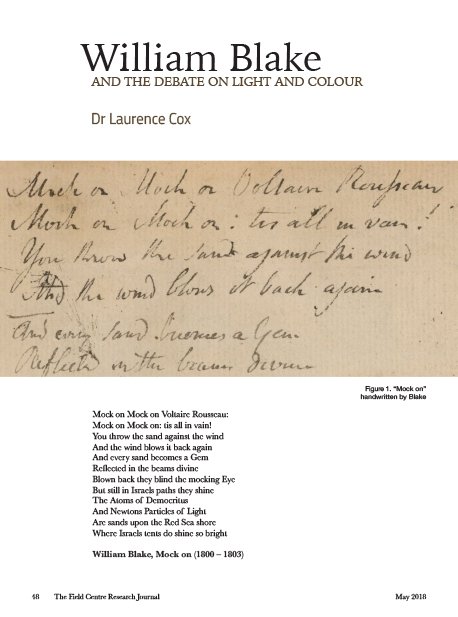 William Blake
AND THE DEBATE ON LIGHT AND COLOUR
Dr Laurence Cox
Mock on Mock on Voltaire Rousseau
Mock on Mock on : tis all in vain !
You throw the sand against the wind
And the wind blows it back again
And every sand becomes a Gem
Reflected in the beams divine
Figure 1. "Mock on"
handwritten by Blake
Mock on Mock on Voltaire Rousseau:
Mock on Mock on: tis all in vain!
You throw the sand against the wind
And the wind blows it back again
And every sand becomes a Gem
Reflected in the beams divine
Blown back they blind the mocking Eye
But still in Israels paths they shine
The Atoms of Democritus
And Newtons Particles of Light
Are sands upon the Red Sea shore
Where Israels tents do shine so bright
William Blake, Mock on (1800 – 1803)
48 The Field Centre Research Journal May 2018